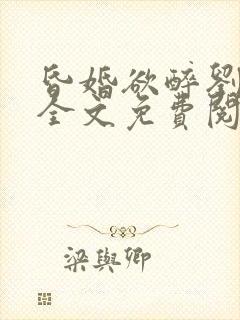 昏婚欲醉劉
全文免費閱
梁與卿